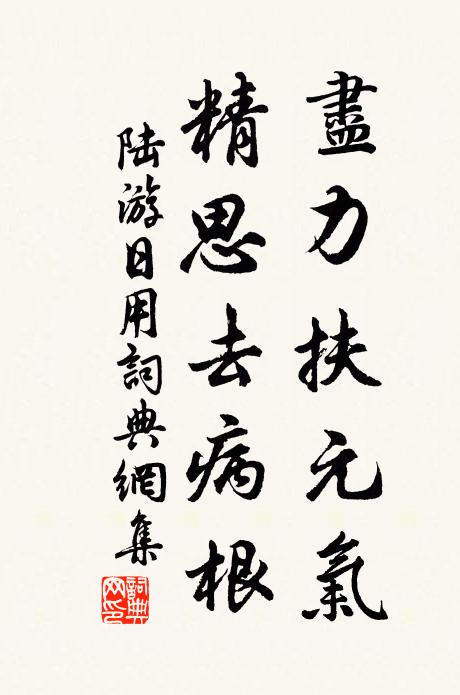 盡力扶元氣
精思去病根
陸游日用詞典網集
詞典網印